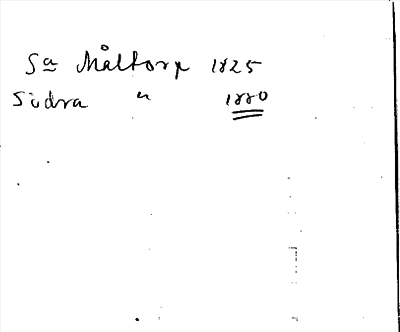 Sa Måltorp 1825
Södra " 1880